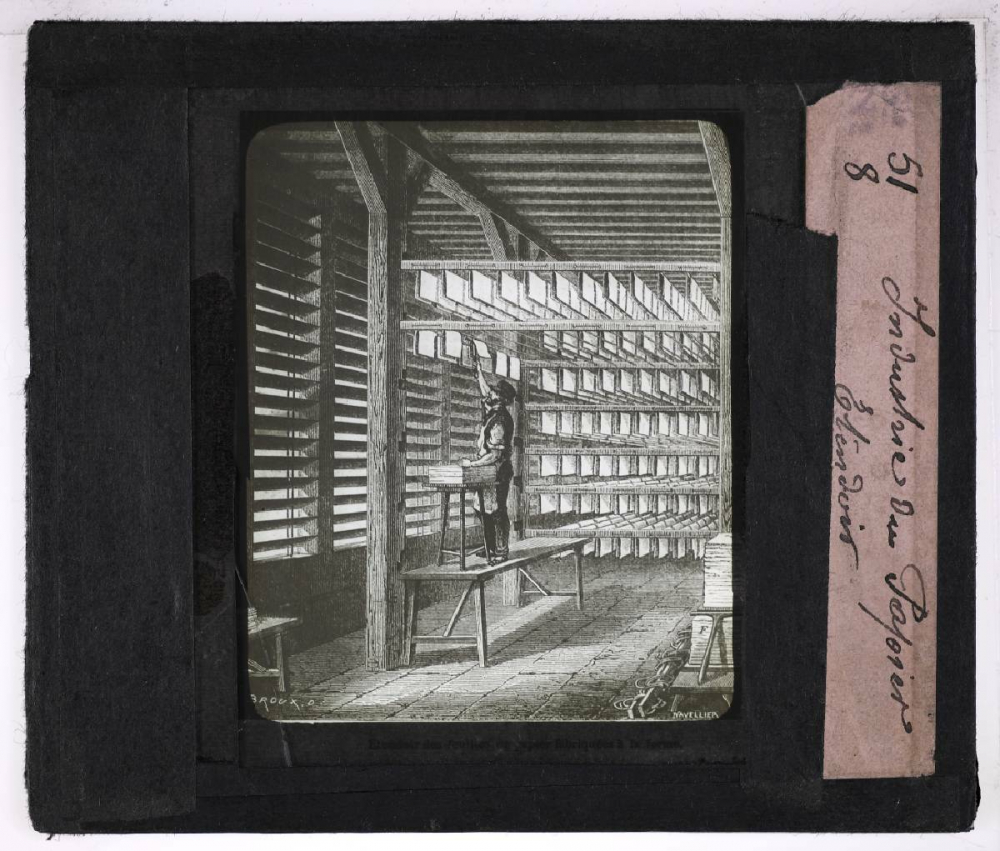 51
8
Industrie du Papier
Etendoir
BROUX. D.
NAVELLIER
F
Etendoir des feuilles de papier fabriquées à la forme.